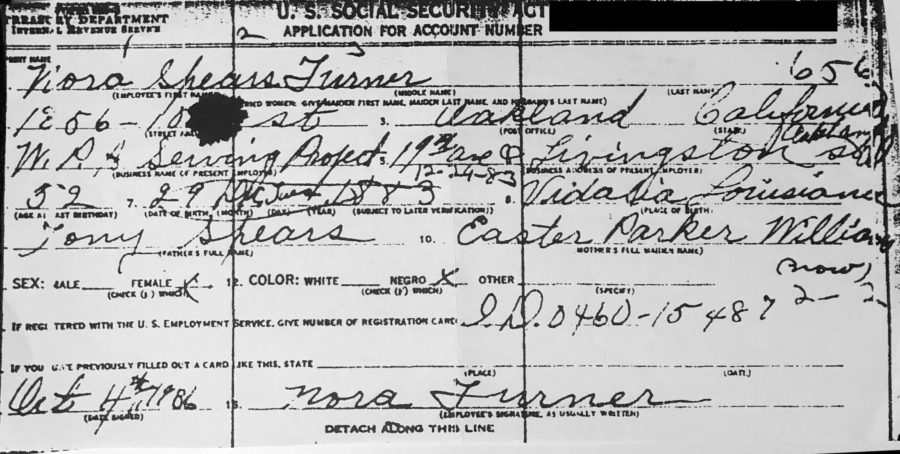 TREASURY DEPARTMENT
INTERNAL REVENUE SERVICE
U. S. SOCIAL SECURITY ACT
APPLICATION FOR ACCOUNT NUMBER
1 2 3
PRINT NAME
Nora Shears Turner 656
(EMPLOYEE'S FIRST NAME) (MIDDLE NAME) (LAST NAME)
MARRIED WOMEN: GIVE MAIDEN FIRST NAME, MAIDEN LAST NAME, AND HUSBAND'S LAST NAME)
1856-10 st 3. Oakland California
(STREET AND (POST OFFICE) (STATE)
Oakland
W.P.A Sewing Project 5. 19th ave & Livingston
(BUSINESS NAME OF PRESENT EMPLOYER) 12-29-83 (BUSINESS ADDRESS OF PRESENT EMPLOYER)
52 7. 29 1883 8. Vidalia Louisiana
(AGE AT LAST BIRTHDAY) (DATE OF BIRTH: (MONTH) (DAY) (YEAR) (SUBJECT TO LATER VERIFICATION)) (PLACE OF BIRTH)
Tony Shears 10. Easter Parker William
(FATHER'S FULL NAME) (MOTHER'S FULL MAIDEN NAME)
(now)
SEX: MALE FEMALE X 12. COLOR: WHITE NEGRO X OTHER
(CHECK (✓) WHICH) (CHECK (✓) WHICH) (SPECIFY)
IF REGISTERED WITH THE U. S. EMPLOYMENT SERVICE, GIVE NUMBER OF REGISTRATION CARD: I.D. 0460-15487 2-2
IF YOU HAVE PREVIOUSLY FILLED OUT A CARD LIKE THIS, STATE
(PLACE) (DATE)
Oct 4th 1936 15. Nora Turner
(DATE SIGNED) (EMPLOYEE'S SIGNATURE, AS USUALLY WRITTEN)
DETACH ALONG THIS LINE